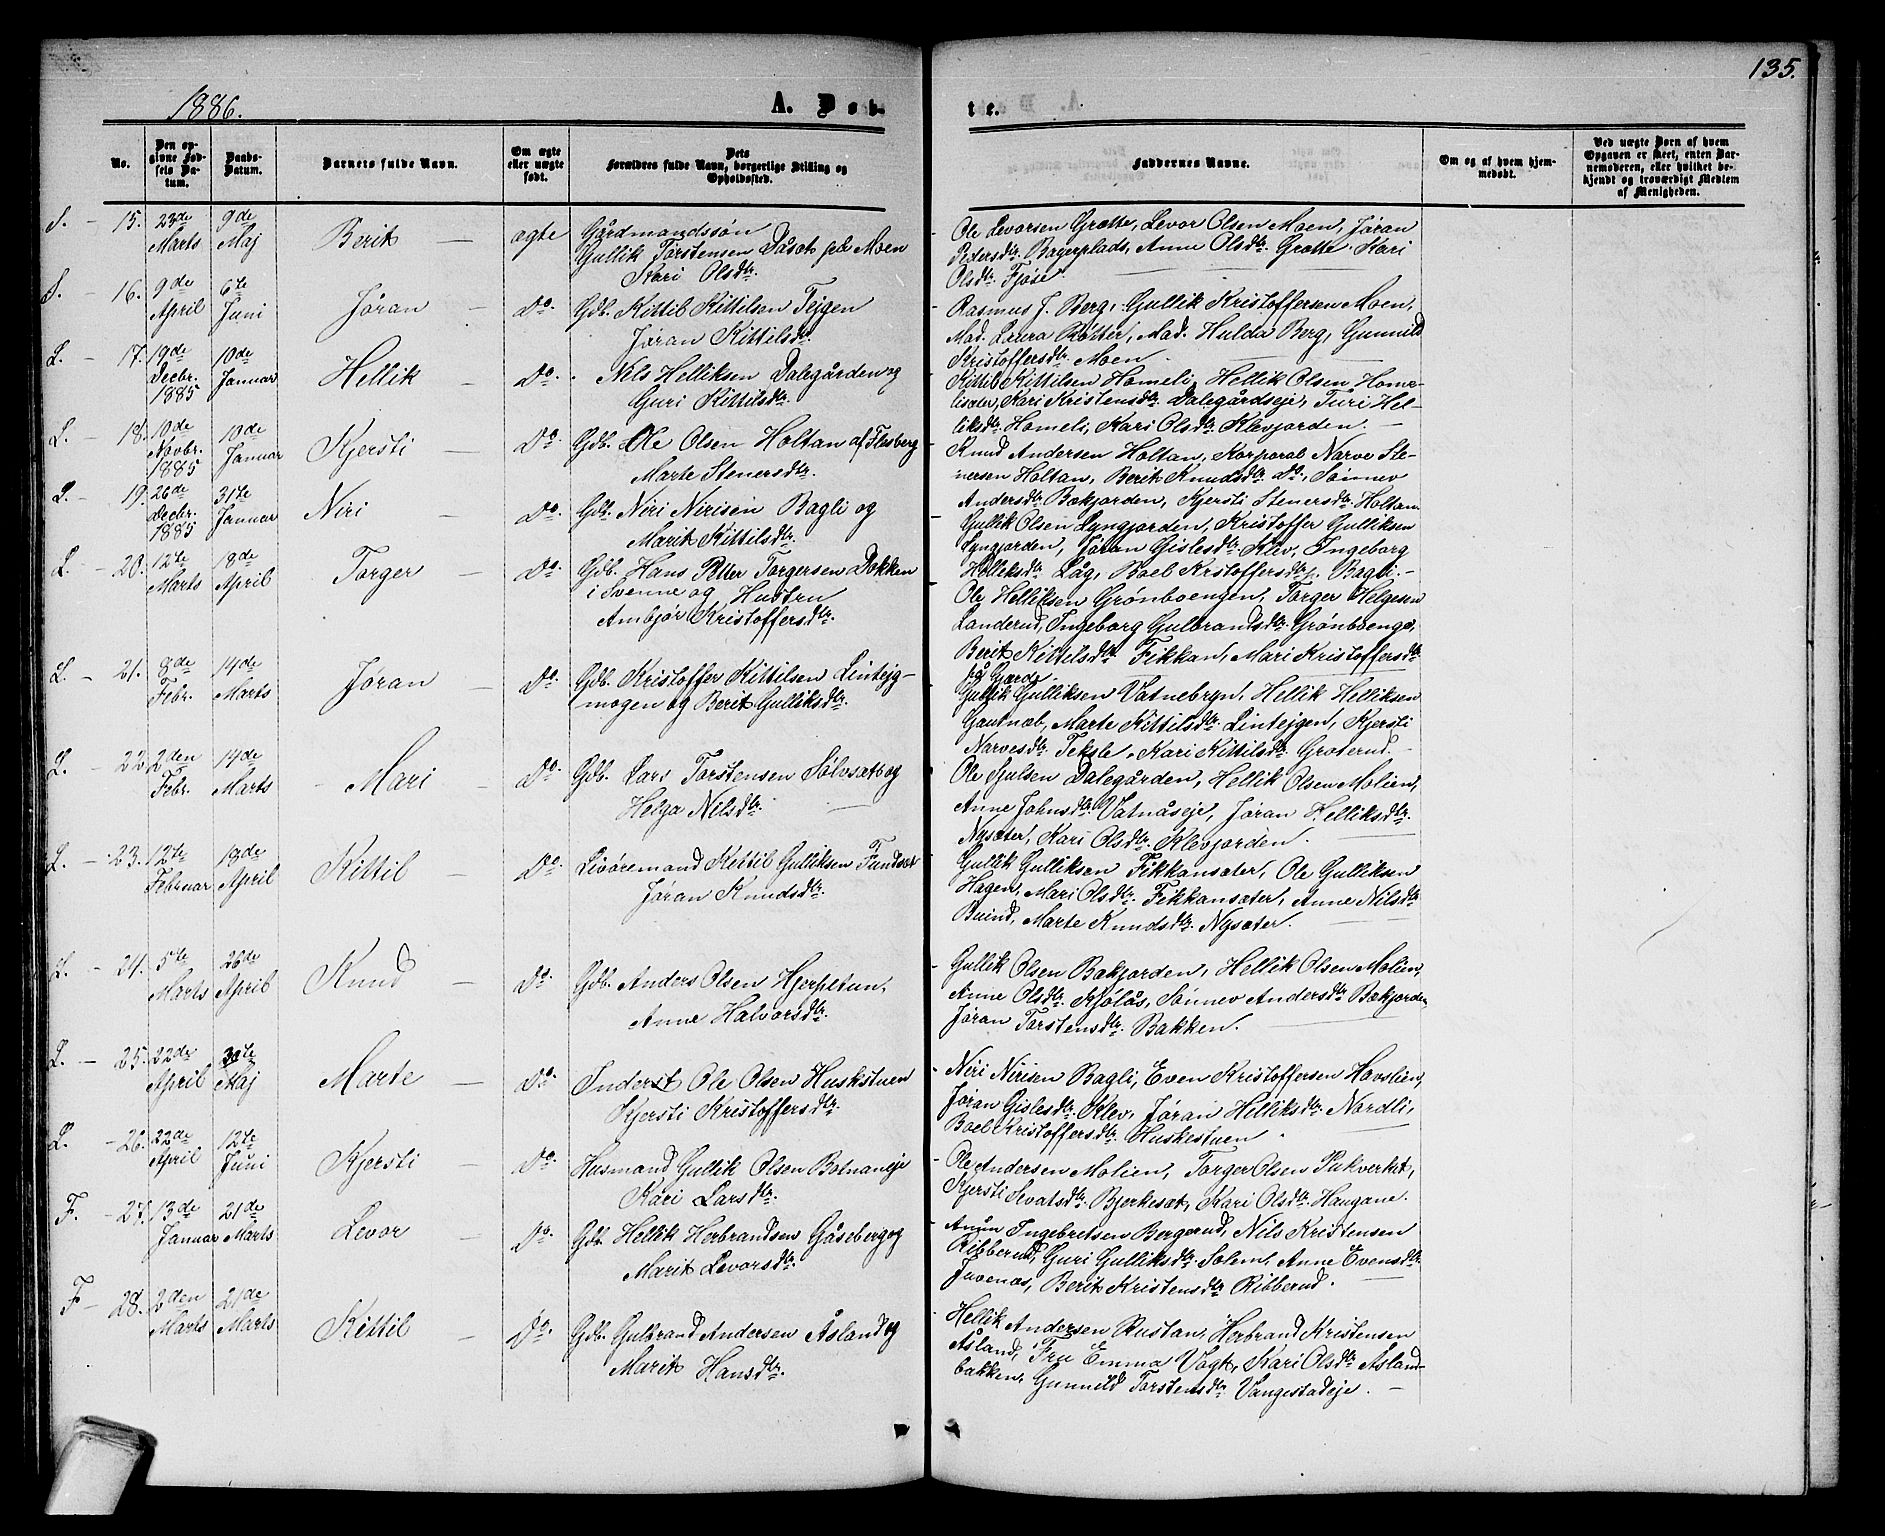 135.
1886.
A. Døb-
te.
No.
Den opgivne Fødsels Datum.
Daabs-Datum.
Barnets fulde Navn.
Om ægte eller uægte født.
Dets Forældres fulde Navn, borgerlige Stilling og Opholdssted.
Faddernes Navne.
Om og af hvem hjemmedøbt.
Ved uægte Børn af hvem Opgaven er skeet, enten Barnemoderen, eller hvilket bekjendt og troværdigt Medlem af Menigheden.
S. - 15. 23de Marts 9de Maj Berit - ægte Gårdmandssøn
Gullik Torstensen Dåset på Moen
Kari Olsdtr.
- Ole Levorsen Grøtte, Levor Olsen Moen, Jøran
Pedersdtr. Bagerplads, Anne Olsdtr. Grøtte Kari
Olsdtr. Fjøse
S. - 16. 9de April 6te Juni Jøran - Do. Gdb. Kittil Kittilsen Tejgen
Jøran Kittilsdtr.
- Rasmus J. Berg, Gullik Kristoffersen Moen,
Mad. Laura Rotter, Mad. Hulda Berg, Gunnild
Kristoffersdtr. Moen.
L. - 17. 19de Decbr. 1885 10de Januar Hellik - Do. - Nels Helliksen Dalegården og
Guri Kittilsdtr.
Kittil Kittilsen Homeli, Hellik Olsen Home-
lisæter, Kari Kristensdtr. Dalegårdseje, Turi Hel-
liksdtr. Homeli, Kari Olsdtr. Klevjorden. -
L. - 18. 10de Novbr. 1885 10de Januar Kjersti - Do. Gdb. Ole Olsen Holtan af Flesberg
Marte Stenersdtr.
Knud Andersen Holtan, Korporal Narve Ste-
nersen Holtan, Berit Knudsdtr. Do., Sønnev
Andersdtr. Bækjorden, Kjersti Stenersdtr. Holtan.
L. - 19. 26de Decbr. 1885 31te Januar Niri - Do. Gdb. Niri Nirisen Bagli og
Marit Kittilsdtr.
- Gullik Olsen Lyngjorden, Kristoffer Gulliksen
Lyngjorden, Jøran Gislesdtr. Klev, Ingeborg
Helliksdtr. Låg, Boel Kristoffersdtr. Bagli. -
L. - 20. 12te Marts 18de April Torger - Do. Gdb. Hans Petter Torgersen Dokken
i Svenne og Hustru
Ambjør Kristoffersdtr.
Ole Helliksen Grønboengen, Torger Helgesen
Landerud, Ingeborg Gulbrandsdtr. Grønboenge,
Berit Kittelsdtr. Fikkan, Mari Kristoffersdtr.
Gjærde.
L. - 21. 8de Febr. 14de Marts Jøran - Do. Gdb. Kristoffer Kittilsen Lintejg-
mogen og Berit Gulliksdtr.
Gullik Gulliksen Vatnebryn, Hellik Helliksen
Gautnæb, Marte Kittilsdtr. Lintejgen, Kjersti
Narvesdtr. Teksle, Kari Kittilsdtr. Groterud. -
L. - 22. 2den Febr. 14de Marts - Mari - Do. Gdb. Lars Torstensen Sølvsæt og
Helga Nilsdtr.
Ole Sjulsen Dalegården, Hellik Olsen Molien,
Anne Johnsdtr. Vatnåseje, Jøran Helliksdtr.
Nysæter, Kari Olsdtr. Klevjorden.
L. - 23. 12te Februar 18de April Kittil - Do. Livøremand Kittil Gulliksen Fundsæt
Jøran Knudsdtr.
Gullik Gulliksen Fikkansæter, Ole Gulliksen
Hagen, Mari Olsdtr. Fikkansæter, Anne Nilsdtr.
Buind, Marte Knudsdtr. Nysæter.
L. - 24. 5te Marts 26de April Knud - Do. Gdb. Anders Olsen Hjerpetun,
Anne Halvorsdtr.
- Gullik Olsen Bækjorden, Hellik Olsen Molien,
Anne Olsdtr. Kjølås, Sønnev Andersdtr. Bækjorden,
Jøran Torstensdtr. Bakken.
L. - 25. 22de April 30te Maj Marte - Do. Inderst Ole Olsen Huskstuen
Kjersti Kristoffersdtr.
- Niri Nirisen Bagli, Even Kristoffersen Hovslien,
Jøran Gislesdtr. Klev, Jøran Helliksdtr. Nordli,
Boel Kristoffersdtr. Huskestuen
L. - 26. 22de April 12te Juni Kjersti - Do. Husmand Gullik Olsen Botnaneje
Kari Larsdtr.
- Ole Andersen Molien, Torger Olsen Pukverket,
Kjersti Sevatsdtr. Bjerkesæt, Kari Olsdtr. Haugane.
F. - 27. 13de Januar 21de Marts Levor - Do. Gdb. Hellik Herbrandsen Gåseberg og
Marit Levorsdtr.
- Anun Ingebretsen Bergerud, Nils Kristensen
Ribberud, Guri Gulliksdtr. Solem, Anne Evensdtr.
Juvenæs, Berit Kristensdtr. Ribberud.
F - 28. 2den Marts 21de Marts Kittil - Do. Gdb. Gulbrand Andersen Åsland og
Marit Hansdtr.
- Hellik Andersen Rustan, Herbrand Kristensen
Åsland, Fru Emma Vogt, Kari Olsdtr. Åsland-
bakken, Gunnild Torstensdtr. Vangestadeje. -